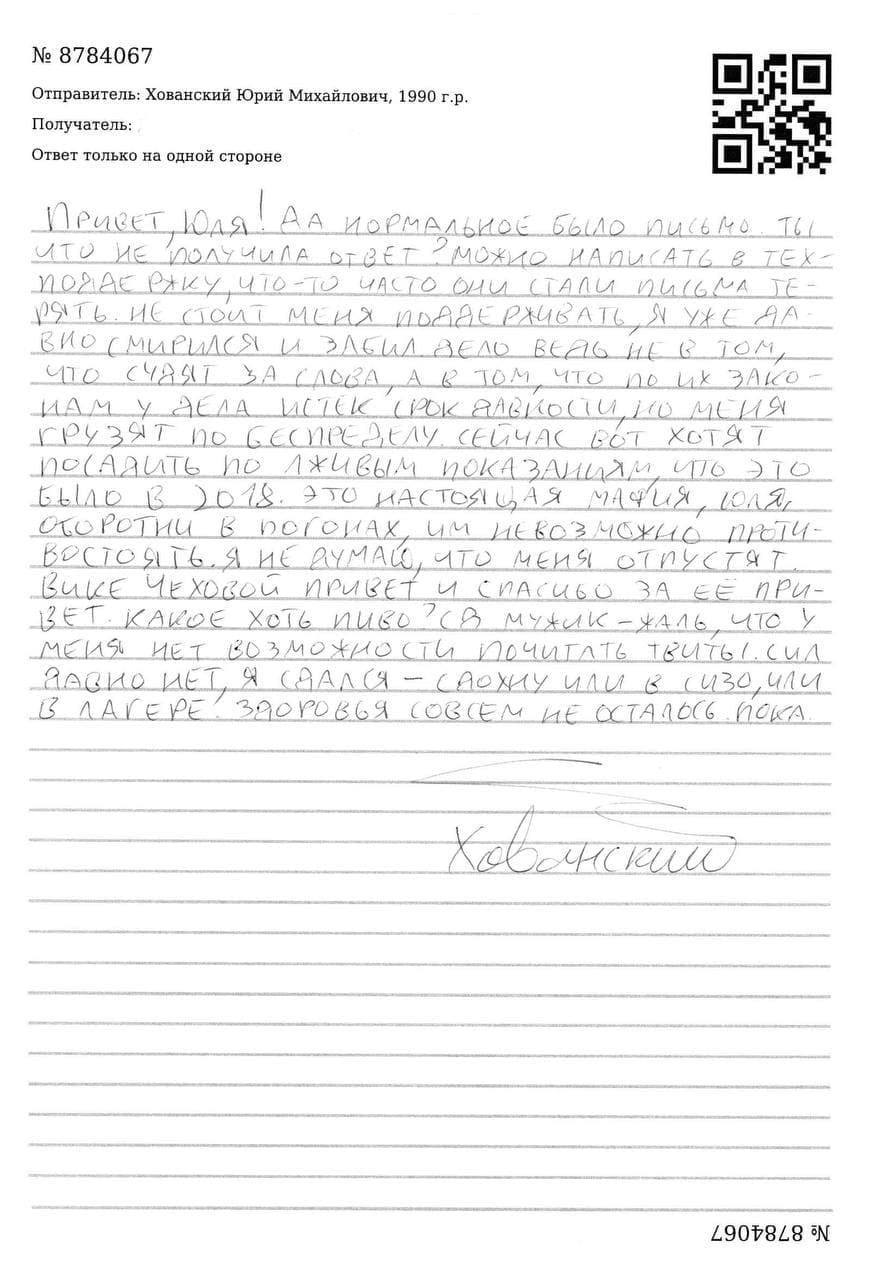 № 8784067
Отправитель: Хованский Юрий Михайлович, 1990 г.р.
Получатель:
Ответ только на одной стороне
Привет, Юля! Да нормальное было письмо. Ты
что не получила ответ? Можно написать в тех-
поддержку, что-то часто они стали письма те-
рять. Не стоит меня поддерживать, я уже да-
вно смирился и забил. Дело ведь не в том,
что судят за слова, а в том, что по их зако-
нам у дела истёк срок давности, но меня
грузят по беспределу. Сейчас вот хотят
посадить по лживым показаниям, что это
было в 2018. Это настоящая мафия, Юля,
оборотни в погонах, им невозможно проти-
востоять. Я не думаю, что меня отпустят.
Вике Чеховой привет и спасибо за её при-
вет. Какое хоть пиво? СД мужик – жаль, что у
меня нет возможности почитать твиты. Сил
давно нет, я сдался – сдохну или в СИЗО, или
в лагере. Здоровья совсем не осталось. Пока.
Хованский
№ 8784067